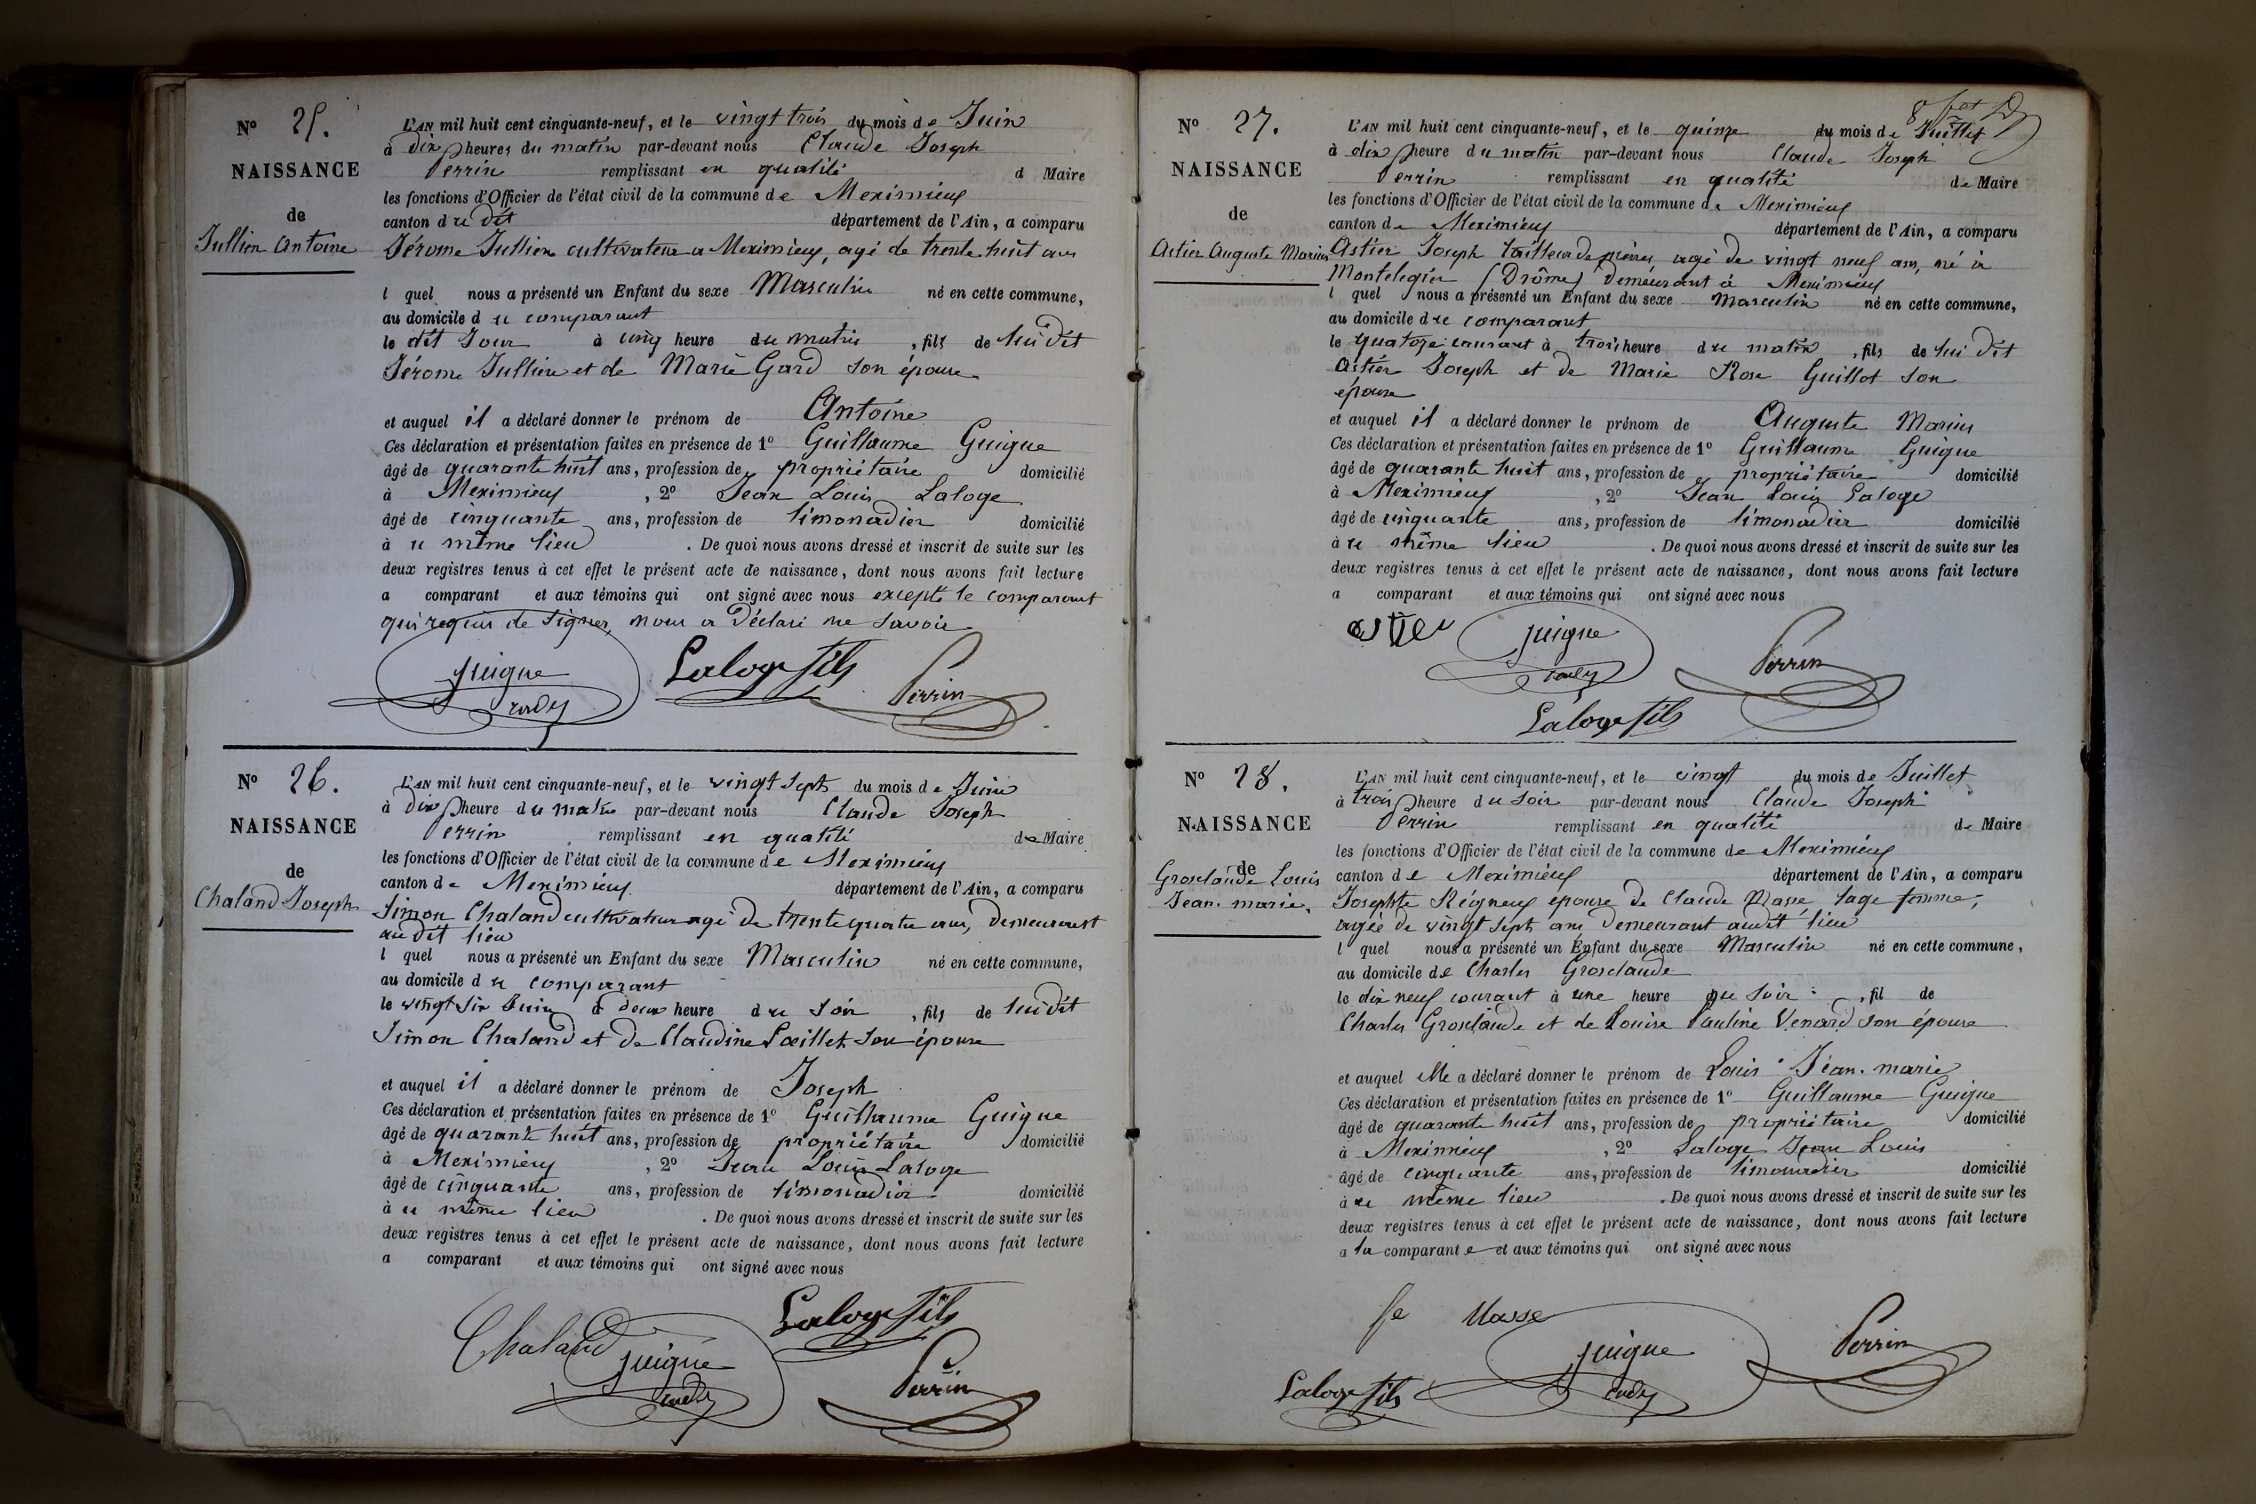 N° 25.
NAISSANCE
de
Jullien Antoine
L'AN mil huit cent cinquante-neuf, et le vingt trois du mois de Juin
à dix heures du matin par-devant nous Claude Joseph
Perrin remplissant en qualité d Maire
les fonctions d'Officier de l'état civil de la commune de Meximieux
canton du dit département de l'Ain, a comparu
Jérome Jullien cultivateur a Meximieux, agé de trente huit ans
l quel nous a présenté un Enfant du sexe Masculin né en cette commune,
au domicile du comparant
le dit Jour à cinq heure du matin, fils de lui dit
Jérome Jullien et de Marie Gard son épouse
et auquel il a déclaré donner le prénom de Antoine
Ces déclaration et présentation faites en présence de 1° Guillaume Guigue
âgé de quarante huit ans, profession de propriétaire domicilié
à Meximieux, 2° Jean Louis Laloge
âgé de cinquante ans, profession de limonadier domicilié
à ce même lieu. De quoi nous avons dressé et inscrit de suite sur les
deux registres tenus à cet effet le présent acte de naissance, dont nous avons fait lecture
a comparant et aux témoins qui ont signé avec nous excepté le comparant
qui requis de signer, nous a Déclaré ne savoir
guigue Laloge fils Perrin
N° 26.
NAISSANCE
de
Chaland Joseph
L'AN mil huit cent cinquante-neuf, et le vingt sept du mois de Juin
à dix heure du matin par-devant nous Claude Joseph
Perrin remplissant en qualité de Maire
les fonctions d'Officier de l'état civil de la commune de Meximieux
canton de Meximieux département de l'Ain, a comparu
Simon Chaland cultivateur agé de trente quatre ans, Demeurant
au dit lieu
l quel nous a présenté un Enfant du sexe Masculin né en cette commune,
au domicile du comparant
le vingt six Juin à deux heure du soir, fils de lui dit
Simon Chaland et de Claudine Poeillet son épouse
et auquel il a déclaré donner le prénom de Joseph
Ces déclaration et présentation faites en présence de 1° Guillaume Guigue
âgé de quarante huit ans, profession de propriétaire domicilié
à Meximieux, 2° Jean Louis Laloge
âgé de cinquante ans, profession de limonadier domicilié
à ce même lieu. De quoi nous avons dressé et inscrit de suite sur les
deux registres tenus à cet effet le présent acte de naissance, dont nous avons fait lecture
a comparant et aux témoins qui ont signé avec nous
Laloge fils
Chaland guigue Perrin
N° 27.
NAISSANCE
de
Astier Auguste Marius
L'AN mil huit cent cinquante-neuf, et le quinze du mois de Juillet
à dix heure du matin par-devant nous Claude Joseph
Perrin remplissant en qualité de Maire
les fonctions d'Officier de l'état civil de la commune de Meximieux
canton de Meximieux département de l'Ain, a comparu
Astier Joseph tailleur de pierres agé de vingt neuf ans, né à
Montelegier (Drôme) demeurant à Meximieux
l quel nous a présenté un Enfant du sexe Masculin né en cette commune,
au domicile du comparant
le quatorze courant à trois heure du matin, fils de lui dit
Astier Joseph et de Marie Rose Guillot son
épouse
et auquel il a déclaré donner le prénom de Auguste Marius
Ces déclaration et présentation faites en présence de 1° Guillaume Guigue
âgé de quarante huit ans, profession de propriétaire domicilié
à Meximieux, 2° Jean Louis Laloge
âgé de cinquante ans, profession de limonadier domicilié
à ce même lieu. De quoi nous avons dressé et inscrit de suite sur les
deux registres tenus à cet effet le présent acte de naissance, dont nous avons fait lecture
a comparant et aux témoins qui ont signé avec nous
guigue Perrin
Laloge fils
N° 28.
NAISSANCE
de
Grosclaude Louis
Jean-marie.
L'AN mil huit cent cinquante-neuf, et le vingt du mois de Juillet
à trois heure du soir par-devant nous Claude Joseph
Perrin remplissant en qualité de Maire
les fonctions d'Officier de l'état civil de la commune de Meximieux
canton de Meximieux département de l'Ain, a comparu
Josephte Reigneux epouse de Claude Masse, sage femme,
agée de vingt sept ans demeurant audit lieu
l quel nous a présenté un Enfant du sexe Masculin né en cette commune,
au domicile de Charles Grosclaude
le dix neuf courant à une heure du soir, fil de
Charles Grosclaude et de Louise Pauline Venard son épouse
et auquel elle a déclaré donner le prénom de Louis Jean-marie
Ces déclaration et présentation faites en présence de 1° Guillaume Guigue
âgé de quarante huit ans, profession de propriétaire domicilié
à Meximieux, 2° Laloge Jean Louis
âgé de cinquante ans, profession de limonadier domicilié
à ce même lieu. De quoi nous avons dressé et inscrit de suite sur les
deux registres tenus à cet effet le présent acte de naissance, dont nous avons fait lecture
a la comparante et aux témoins qui ont signé avec nous
fe Masse
guigue Perrin
Laloge fils